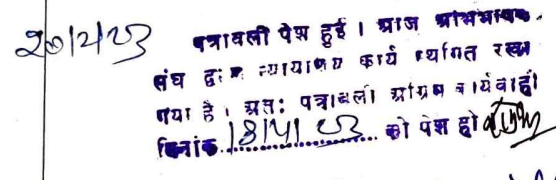 20/2/23 पत्रावली पेश हुई । आज अभिभाषक
संघ द्वारा न्यायालय कार्य स्थगित रखा
गया है । अतः पत्रावली अग्रिम कार्यवाही
दिनांक 18/4/23 को पेश हो